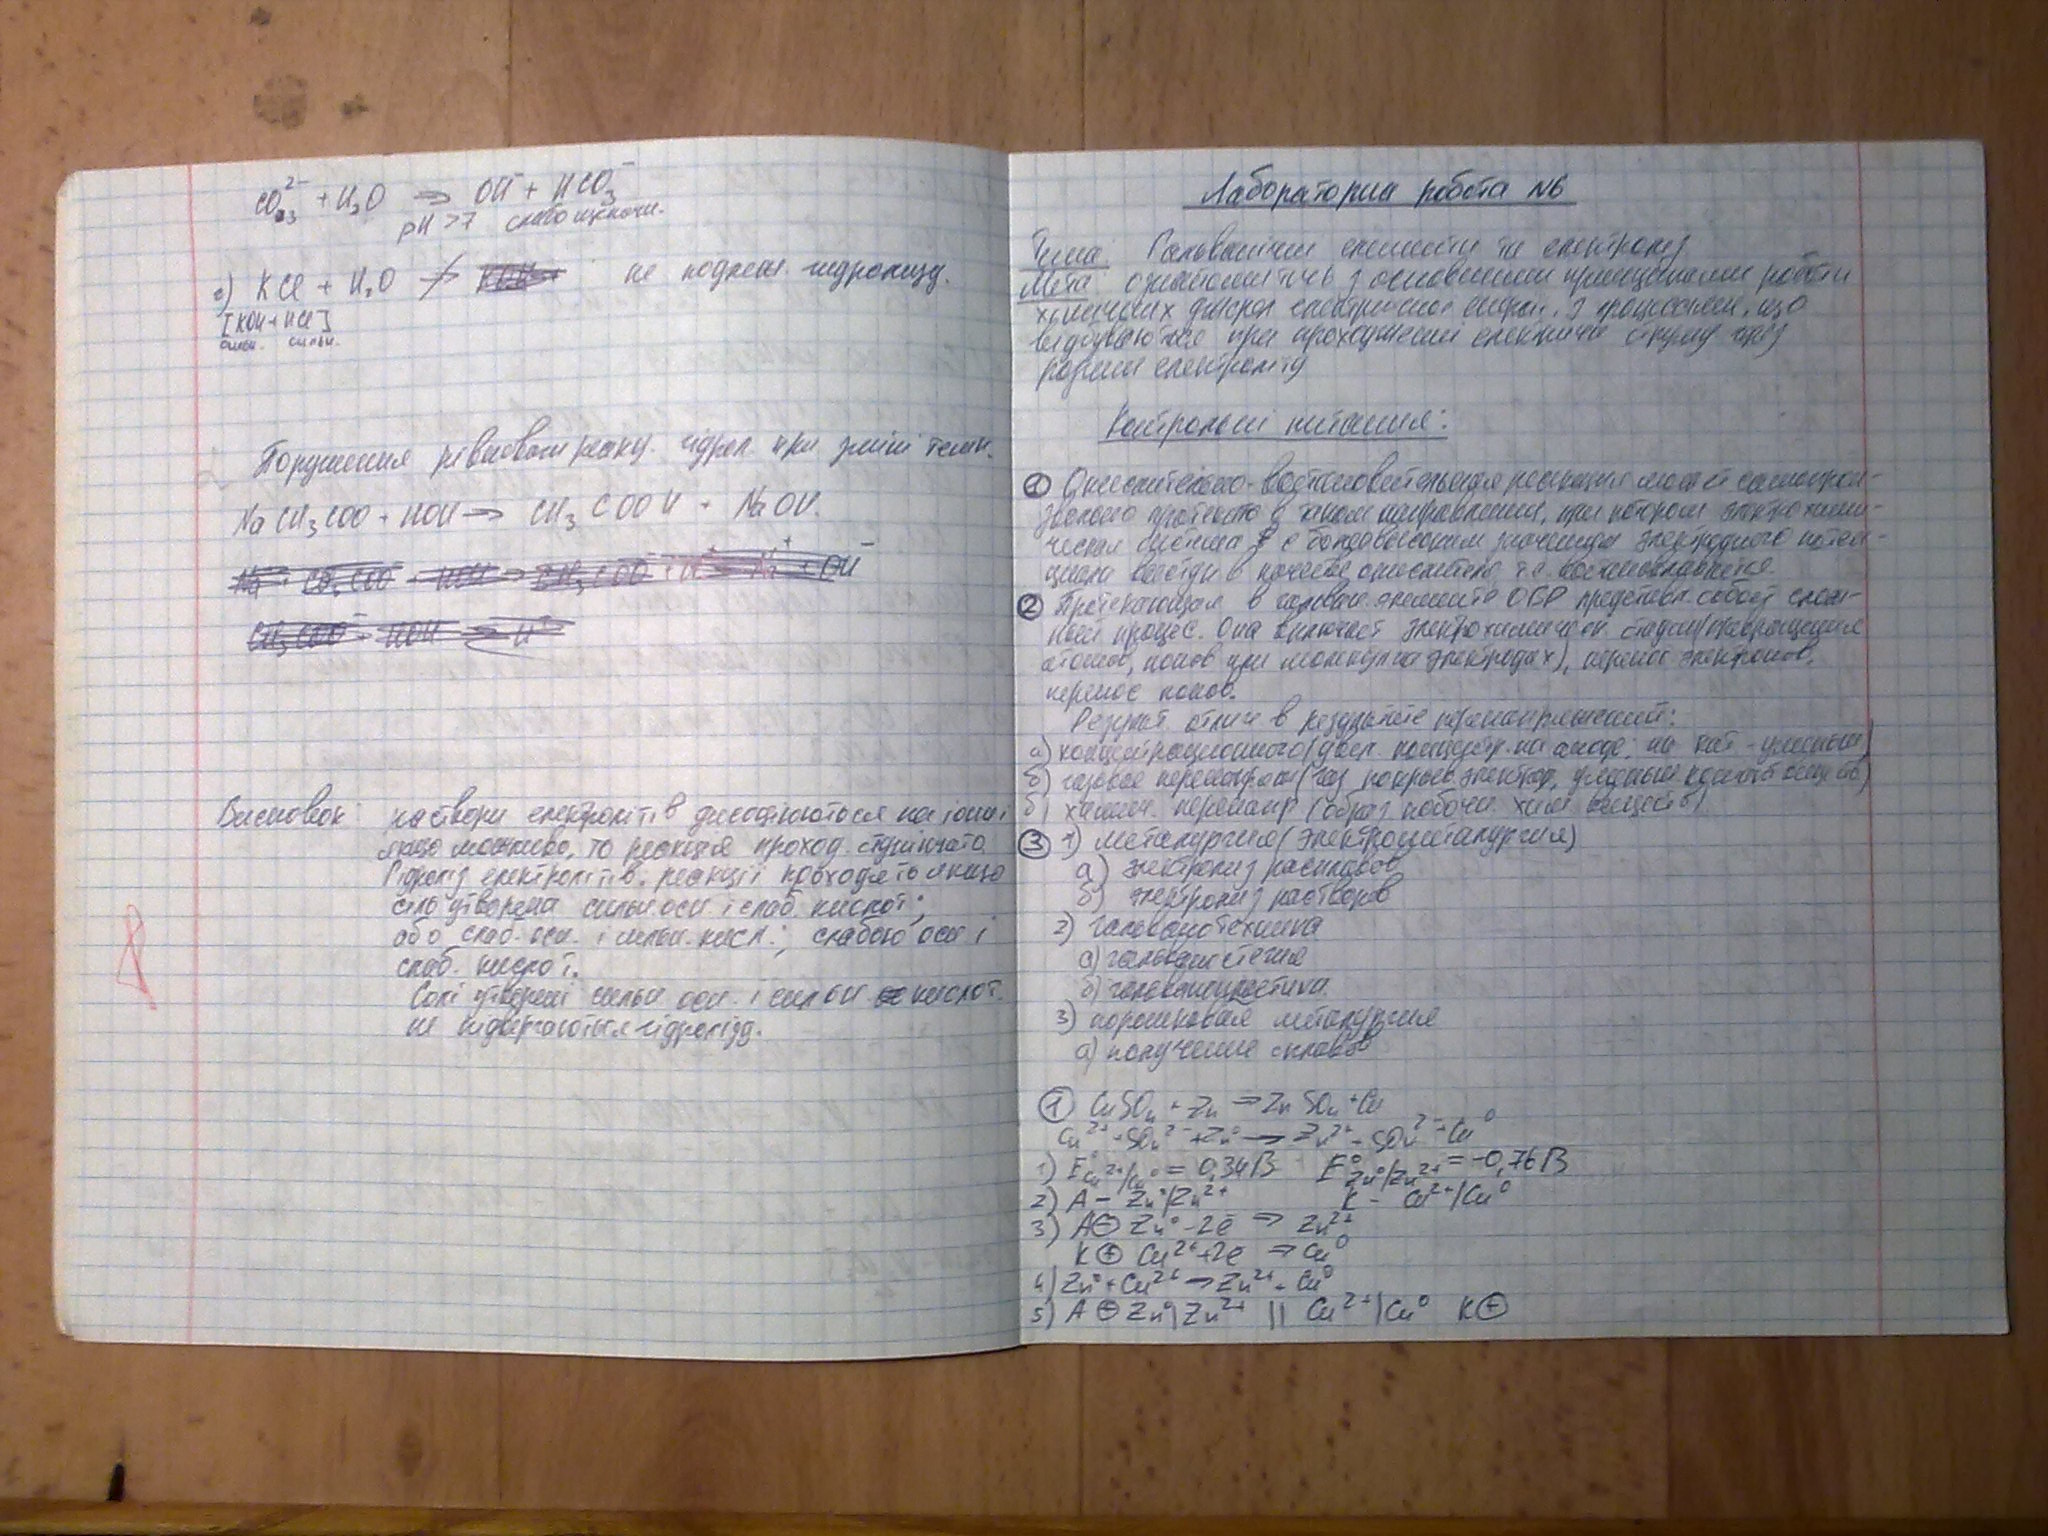 CO₃²⁻ + H₂O ⇒ OH⁻ + HCO₃⁻
pH > 7 слабо щелочн.
KCl + H₂O не гидролизу.
[KOH + HCl]
сильн. сильн.
Порушення рівноваги реакц. гідрол. при зміні темп.
NaCH₃COO + HOH → CH₃COOH + NaOH.
Висновок: розтвори електролітів дисоціюються на іони і
якщо можливо, то реакція проход. ступінчато.
Гідроліз електролітів. реакції якщо
сіль утворена сильн осн. і слаб. кислот;
або слаб. осн. і сильн. кисл.; слабою осн і
слаб. кислот.
Солі утворені сильн осн. і сильн кислот.
не підвергаються гідролізу.
8
Лабораторна робота №6
Тема: Гальванічні елементи та електроліз
Мета: ознайомитись з основними принципами роботи
хімічних джерел електричної енергії, з процесами, що
відбуваються при проходженні електричн струму через
розчини електроліту
Контрольні питання:
① Окислительно-востановительная реакция может самопроиз-
вольно протекать в таком направлении, при котором электрохими-
ческая система с более высоким значением электродного потен-
циала выступ в качестве окислителя, т.е. востанавливается
② Протекающая в гальван. элементе ОВР представл. собой слож-
ный процес. Она включает электрохимическ. стадии (превращения
атомов, ионов или молекул на электродах), перенос электронов,
перенос ионов.
отлич в результате перенапряжений:
а) концентрационного (увел. концентр. на аноде; на кат - уменьш)
б) газовое перенапряж (газ покрыв электрод, уменьш)
б) химич. перенапр (образ побочн хим веществ)
③ 1) металургия (электрометалургия)
а) электролиз расплавов
б) электролиз растворов
2) гальванотехника
а) гальваностегия
б) гальванопластика
3) порошковая металургия
а) получение сплавов
① CuSO₄ + Zn ⇒ ZnSO₄ + Cu
Cu²⁺ + SO₄²⁻ + Zn⁰ → Zn²⁺ + SO₄²⁻ + Cu⁰
1) E°Cu²⁺/Cu⁰ = 0,34В E°Zn⁰/Zn²⁺ = -0,76В
2) A – Zn⁰/Zn²⁺ K – Cu²⁺/Cu⁰
3) A⊖ Zn⁰ - 2e̅ ⇒ Zn²⁺
K⊕ Cu²⁺ + 2e̅ ⇒ Cu⁰
4) Zn⁰ + Cu²⁺ → Zn²⁺ + Cu⁰
5) A ⊖ Zn⁰ | Zn²⁺ || Cu²⁺ | Cu⁰ K⊕